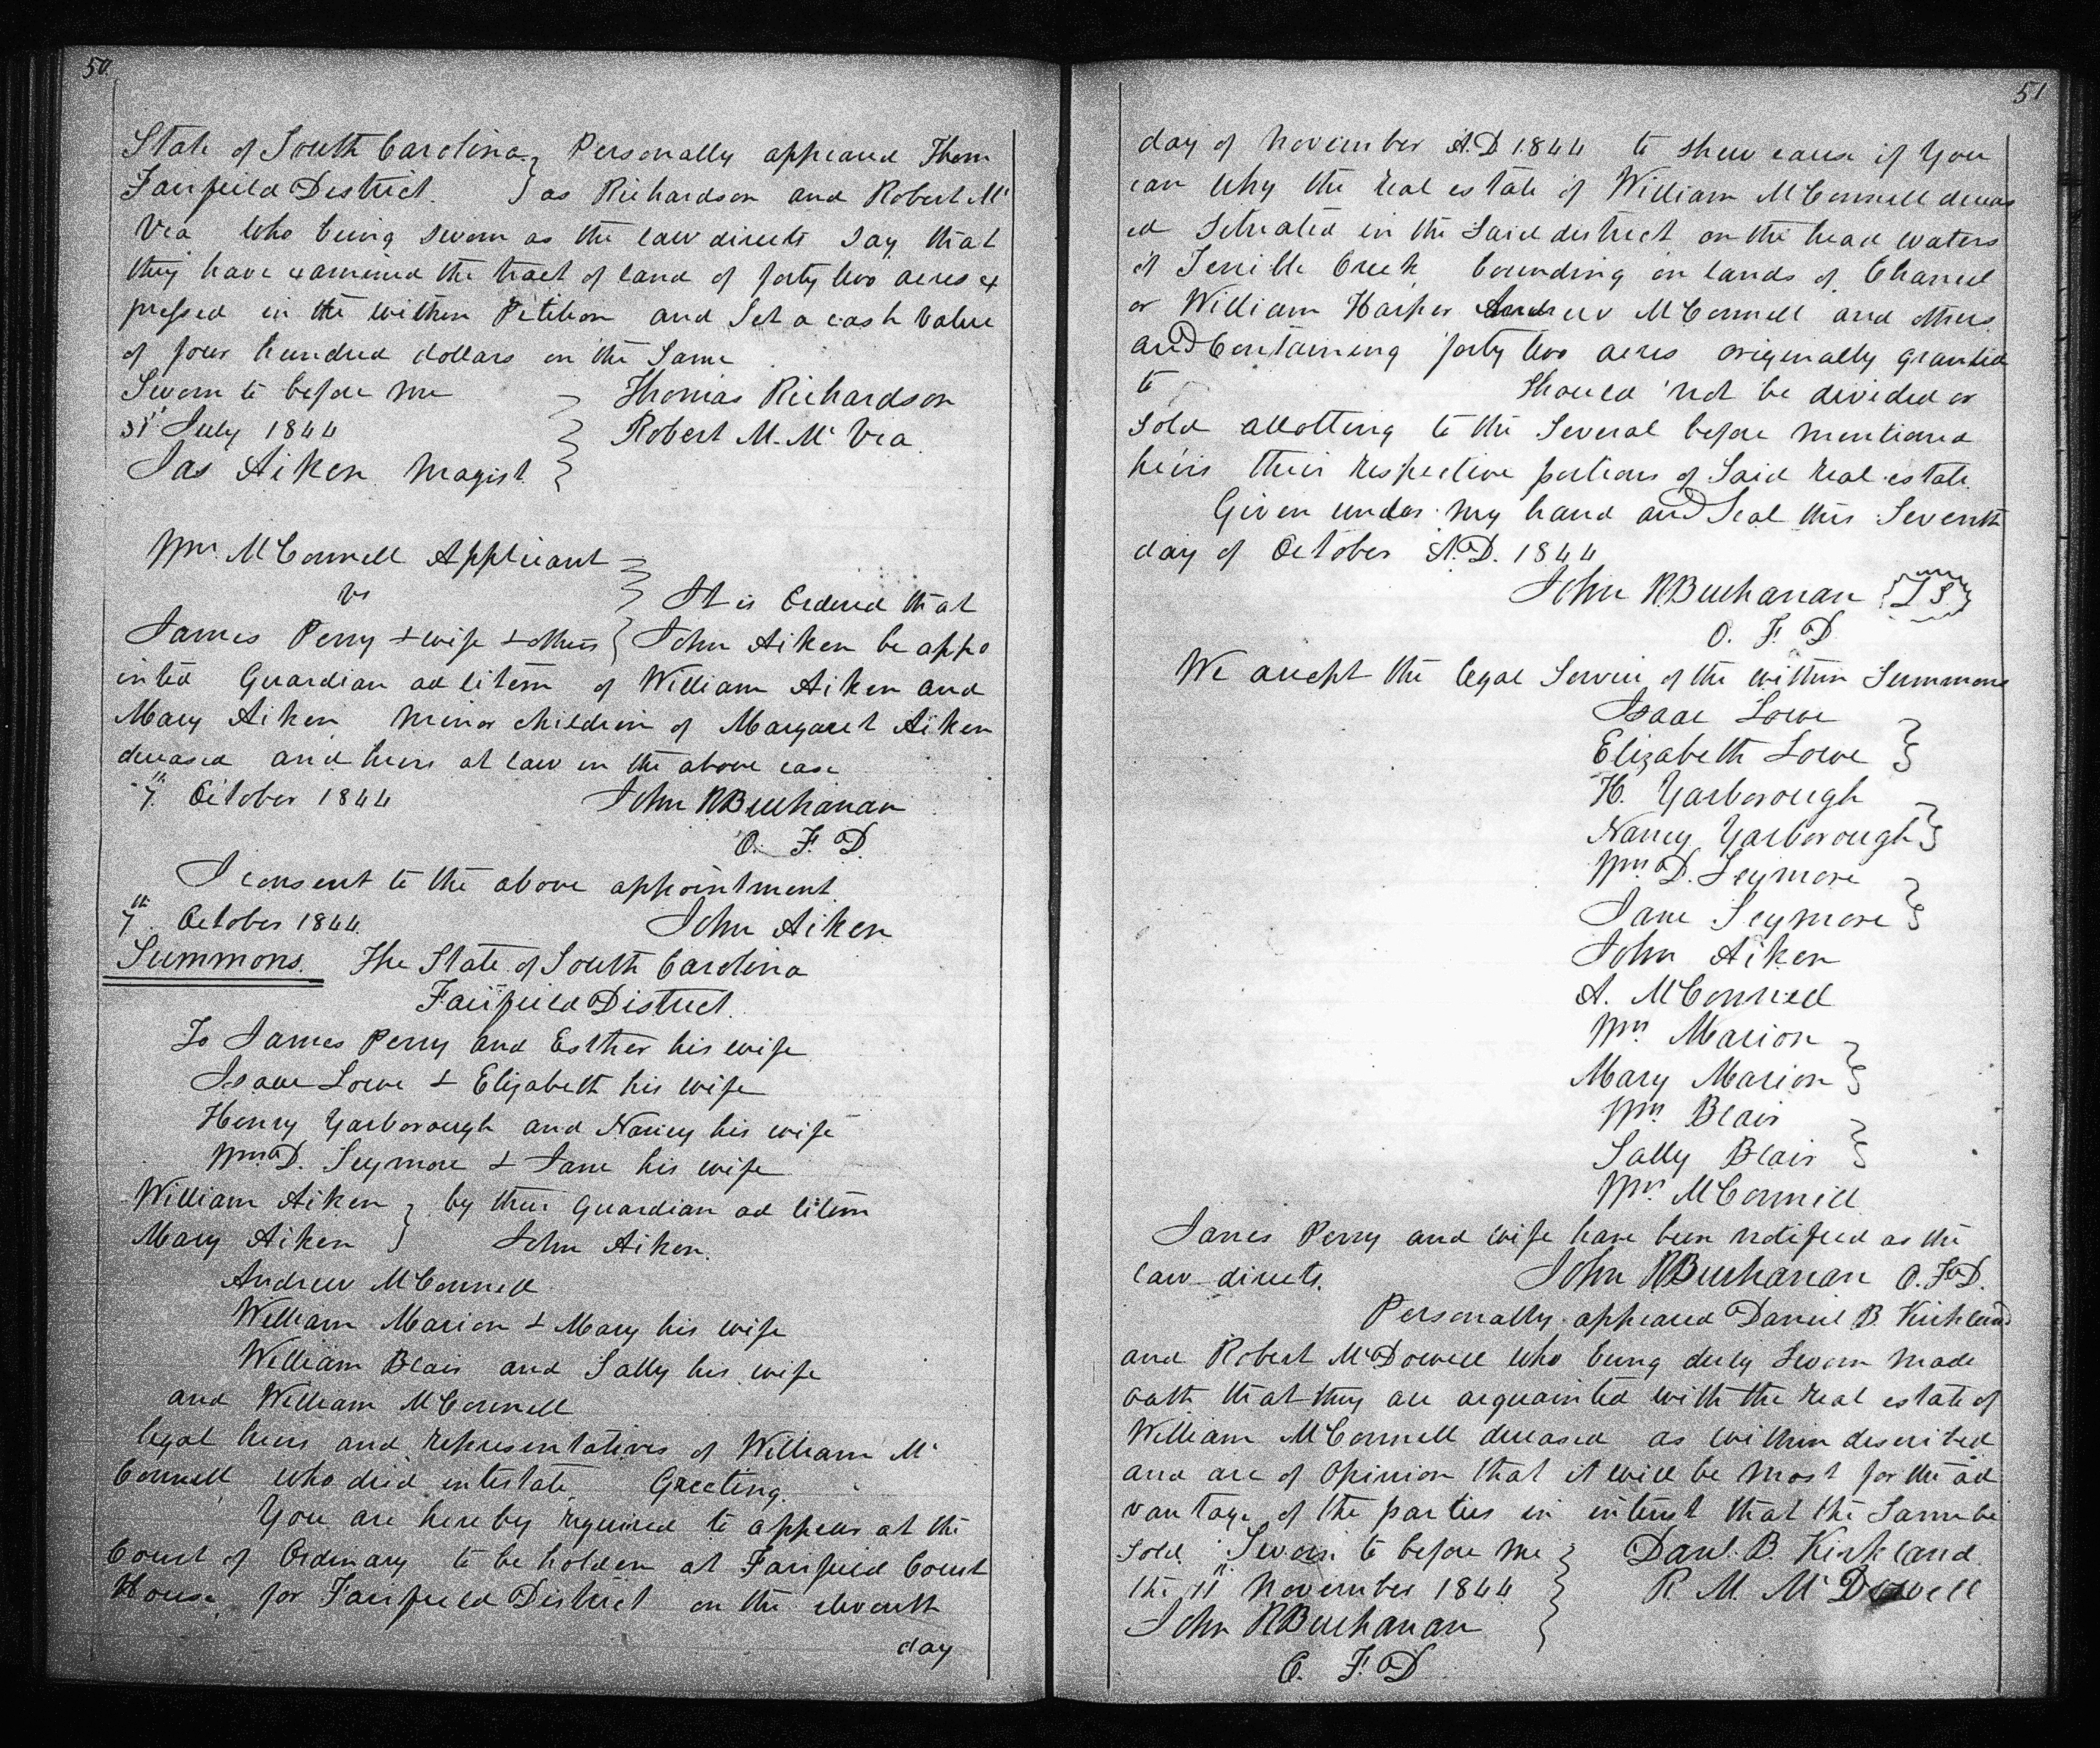 50.
State of South Carolina } Personally appeared Thom
Fairfield District. } as Richardson and Robert Mc
Vea who being sworn as the law directs say that
they have examined the tract of land of forty two acres ex
pressed in the within Petition and Set a cash value
of four hundred dollars on the Same
Sworn to before me } Thomas Richardson
31st July 1844 } Robert M. Mc Vea.
Jas Aiken Magist. }
Wm. McConnell Applicant }
vs } It is Ordered that
James Perry & wife & others } John Aiken be appo
inted Guardian ad litem of William Aiken and
Mary Aiken minor children of Margaret Aiken
deceased and heirs at law in the above case
7th. October 1844 John R Buchanan
O. F. D.
I consent to the above appointment.
7th. October 1844. John Aiken
Summons. The State of South Carolina
Fairfield District.
To James Perry and Esther his wife
Isaac Lowe & Elizabeth his wife
Henry Yarborough and Nancy his wife
Wm. D. Seymore & Jane his wife
William Aiken } by their Guardian ad litem
Mary Aiken } John Aiken.
Andrew McConnell
William Marion & Mary his wife
William Blair and Sally his wife
and William McConnell
legal heirs and representatives of William Mc
Connell who died intestate. Greeting.
You are hereby required to appear at the
Court of Ordinary to be holden at Fairfield Court
House, for Fairfield District on the eleventh
day
51
day of November A.D 1844 to shew cause if you
can why the real estate of William McConnell deceas
ed situated in the said district on the head waters
of Terrible Creek bounding on lands of
or William Harper Andrew McConnell and others
and Containing forty two acres originally granted
to should not be divided or
sold allotting to the several before mentioned
heirs their respective portions of said real estate.
Given under my hand and Seal this Seventh
day of October A.D. 1844
John R Buchanan {L S}
O. F. D
We accept the legal Service of the within Summons
Isaac Lowe }
Elizabeth Lowe }
H. Yarborough }
Nancy Yarborough }
Wm. D. Seymore }
Jane Seymore }
John Aiken
A. McConnell
Wm. Marion }
Mary Marion }
Wm. Blair }
Sally Blair }
Wm. McConnell
James Perry and wife have been notified as the
law directs. John R Buchanan O. F. D.
Personally appeared Daniel B. Kirkland
and Robert McDowell who being duly sworn made
oath that they are acquainted with the real estate of
William McConnell deceased as within described
and are of opinion that it will be most for the ad
vantage of the parties in interest that the Same be
sold. Sworn to before me } Danl. B. Kirkland.
the 11th. November 1844 } R. M. McDowell
John R Buchanan }
O. F. D